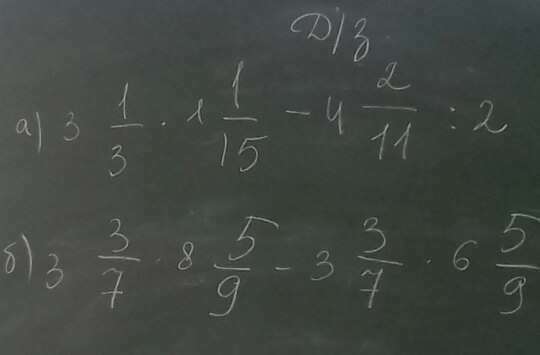 Д/з
а) 3 1/3 · 1 1/15 - 4 2/11 : 2
б) 3 3/7 · 8 5/9 - 3 3/7 · 6 5/9